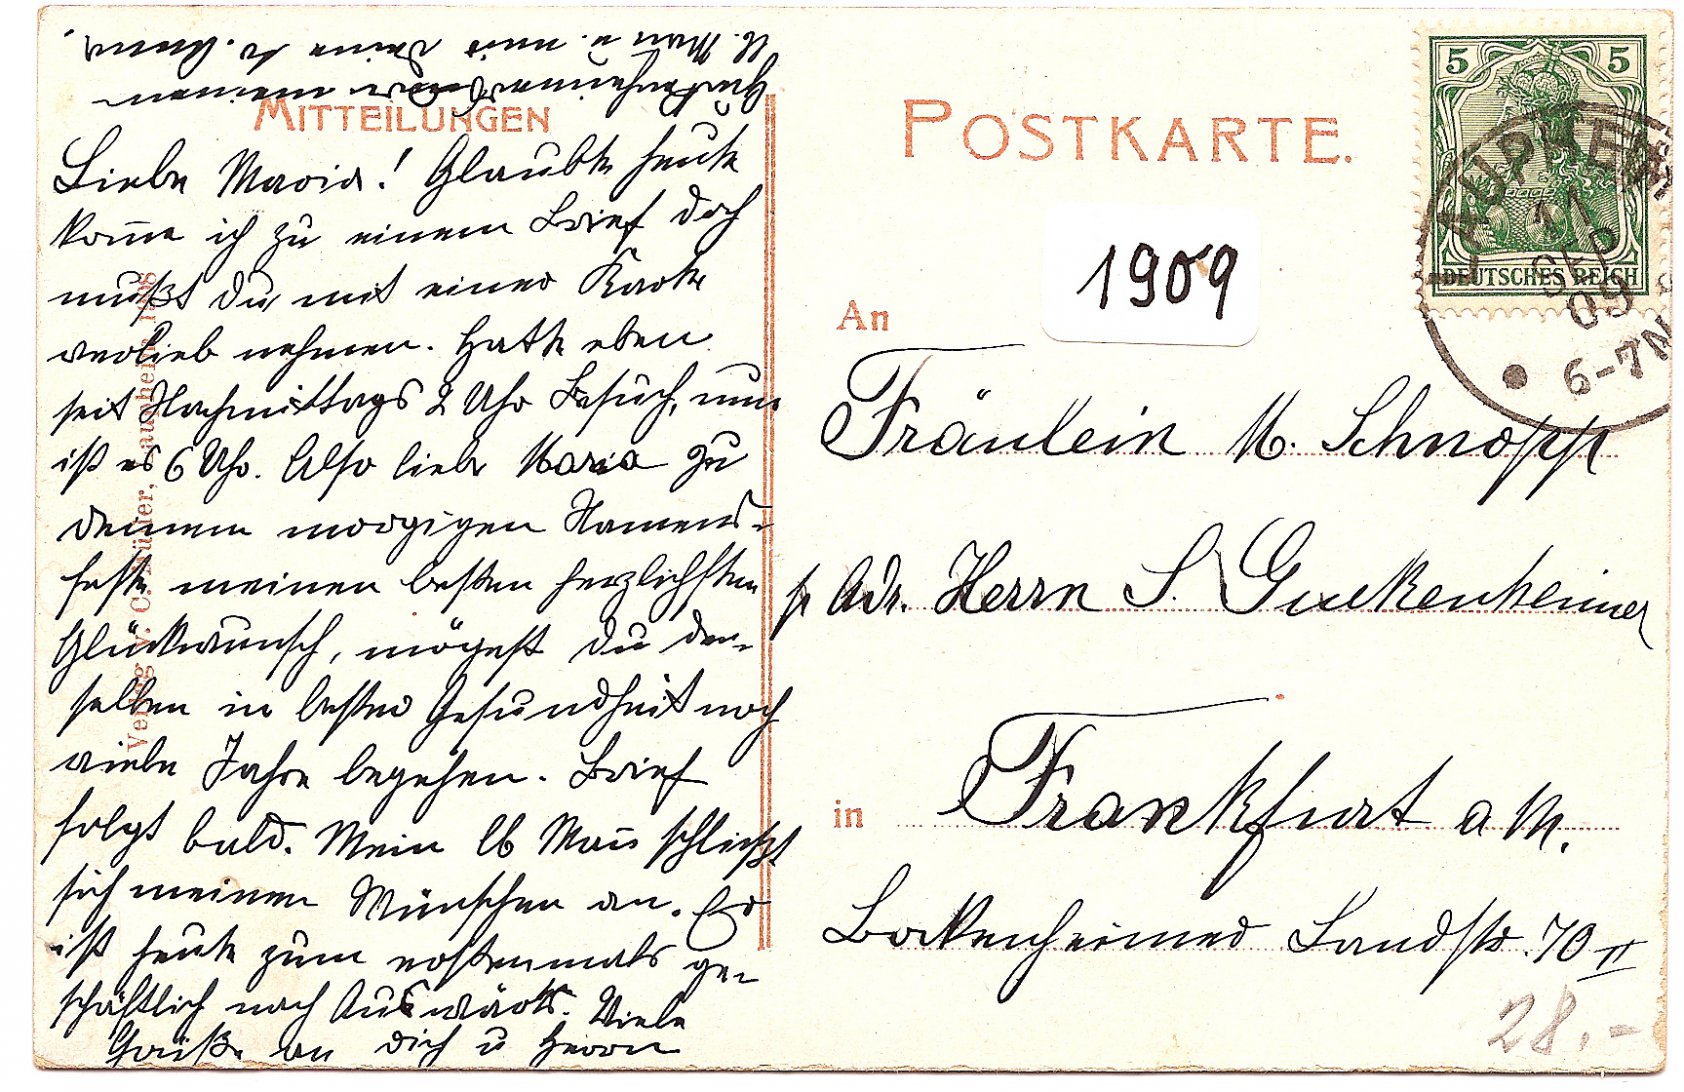 MITTEILUNGEN
Liebe Maria! Glaubte heute
kom̅e ich zu einem Brief doch
mußt du mit einer Karte
verlieb nehmen. Hatte eben
seit Nachmittags 2 Uhr Besuch, nun
ist es 6 Uhr. Also liebe Maria zu
deinem morgigen Namens-
feste meinen besten herzlichsten
Glückwunsch, mögest du den-
selben in bester Gesundheit noch
viele Jahre begehen. Brief
folgt bald. Mein lb Man̅ schließt
sich meinen Wünschen an. Er
ist heute zum erstenmals ge-
schäftlich nach Auswärts. Viele
Grüße an dich u Herrn
von meinem
lb. Man u. mir deine
Verlag v. C. Müller, Laupheim 1908
POSTKARTE.
5 5
DEUTSCHES REICH
LAUPHEIM
11
SEP
09
6-7N
1909
An
Fräulein M. Schnopp
p Adr. Herrn S. Guckenheimer
in Frankfurt a M.
Bockenheimer Landstr. 70 II
28.-